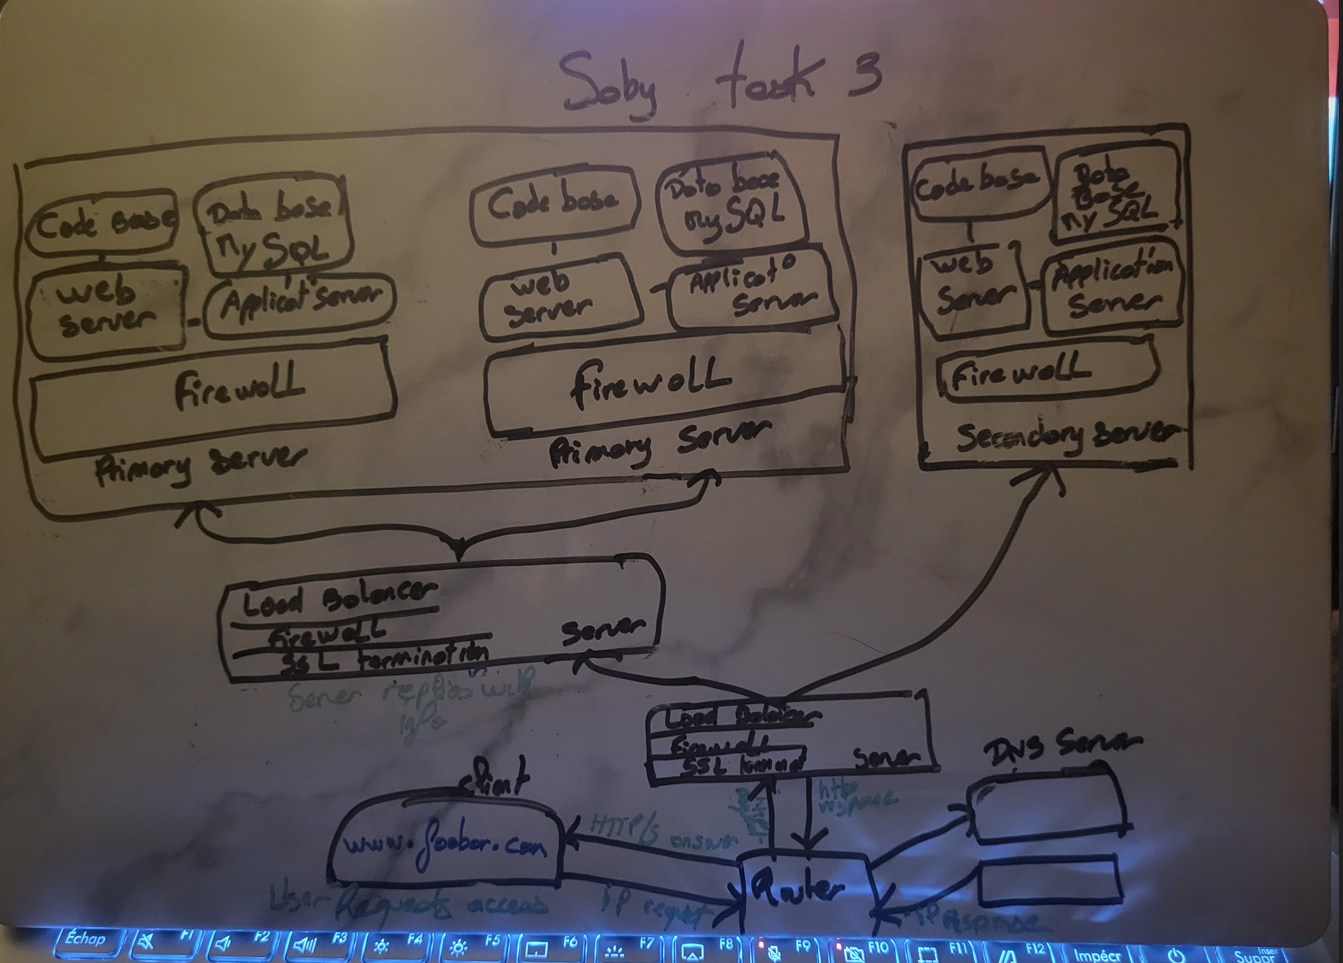 Soby task 3
Code base
Data base
My SQL
web
Server
Applicat° Server
Firewall
Primary Server
Code base
Data base
My SQL
web
Server
Applicat°
Server
Firewall
Primary Server
Code base
Data
Base
My SQL
web
Server
Application
Server
Firewall
Secondary Server
Load Balancer
Firewall
SSL termination
Server
Server replies with
Info
Load Balancer
Firewall
SSL
Server
DNS Server
http
response
client
www.foobar.com
HTTP/s answer
Router
User Requests access
IP request
IP Response
Échap
F1
F2
F3
F4
F5
F6
F7
F8
F9
F10
F11
F12
Impécr
Inser
Suppr